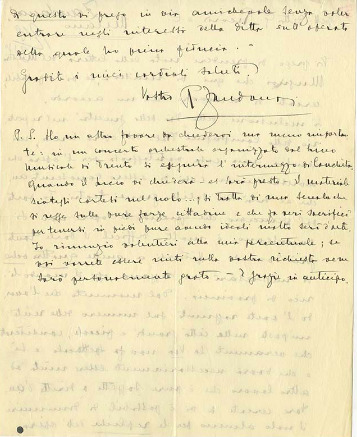 di questo vi prego in via amichevole senza voler
entrare negli interessi della Ditta sull'operato
della quale ho piena fiducia.
Gradite i miei cordiali saluti
Vostro R. Zandonai
P.S. Ho un altro favore da chiedervi ma meno importan
te: in un concerto orchestrale organizzato dal Liceo
musicale di Trento si eseguirà l'intermezzo di Conchita.
Quando il Liceo di chiederà il materiale
siategli cortesi nel nolo...; si tratta di una scuola che
si regge sulle pure forze cittadine e che fa veri sacrifici
per tenersi in piedi pure avendo ideali molto seri d'arte.
Io rinunzio volentieri alla mia percentuale; se
voi vorrete essere miti nella vostra richiesta ve ne
sarò personalmente grato — E grazie in anticipo.